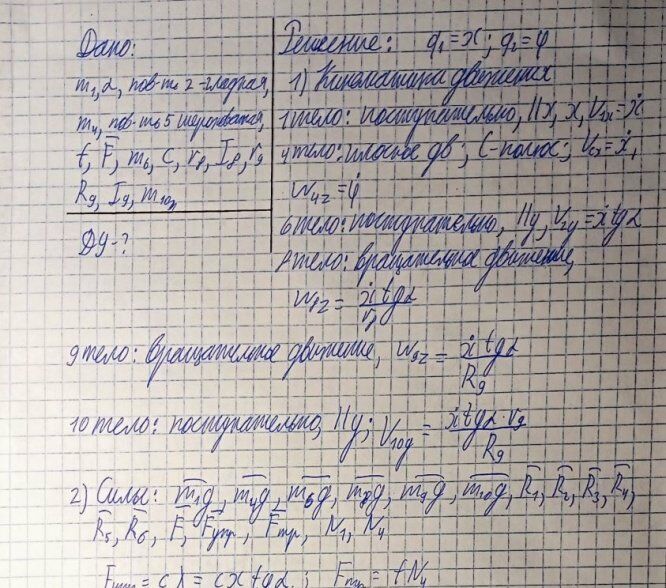 Дано:
m₁, α, пов-ть 2 - гладкая,
m₄, пов-ть 5 шероховатая,
f, F̄, m₆, C, r₈, I₈, r₉
R₉, I₉, m₁₀,
ДУ-?
Решение: q₁=x; q₂=φ
1) Кинематика движения
1 тело: поступательно, IIx, x, V₁ₓ=ẋ
4 тело: плоское дв; C-полюс; Vcx=ẋ,
ω₄z=φ̇
6 тело: поступательно, IIy, V₆y=ẋtgα
8 тело: вращательное движение,
ω₈z = ẋtgα/r₈
9 тело: вращательное движение, ω₉z = ẋtgα/R₉
10 тело: поступательно, IIy; V₁₀y = ẋtgα·r₉/R₉
2) Силы: m₁g, m₄g, m₆g, m₈g, m₉g, m₁₀g, R̄₁, R̄₂, R̄₃, R̄₄,
R̄₅, R̄₆, F̄, F̄упр, F̄тр, N₁, N₄
Fупр = cλ = cxtgα; Fтр = fN₄